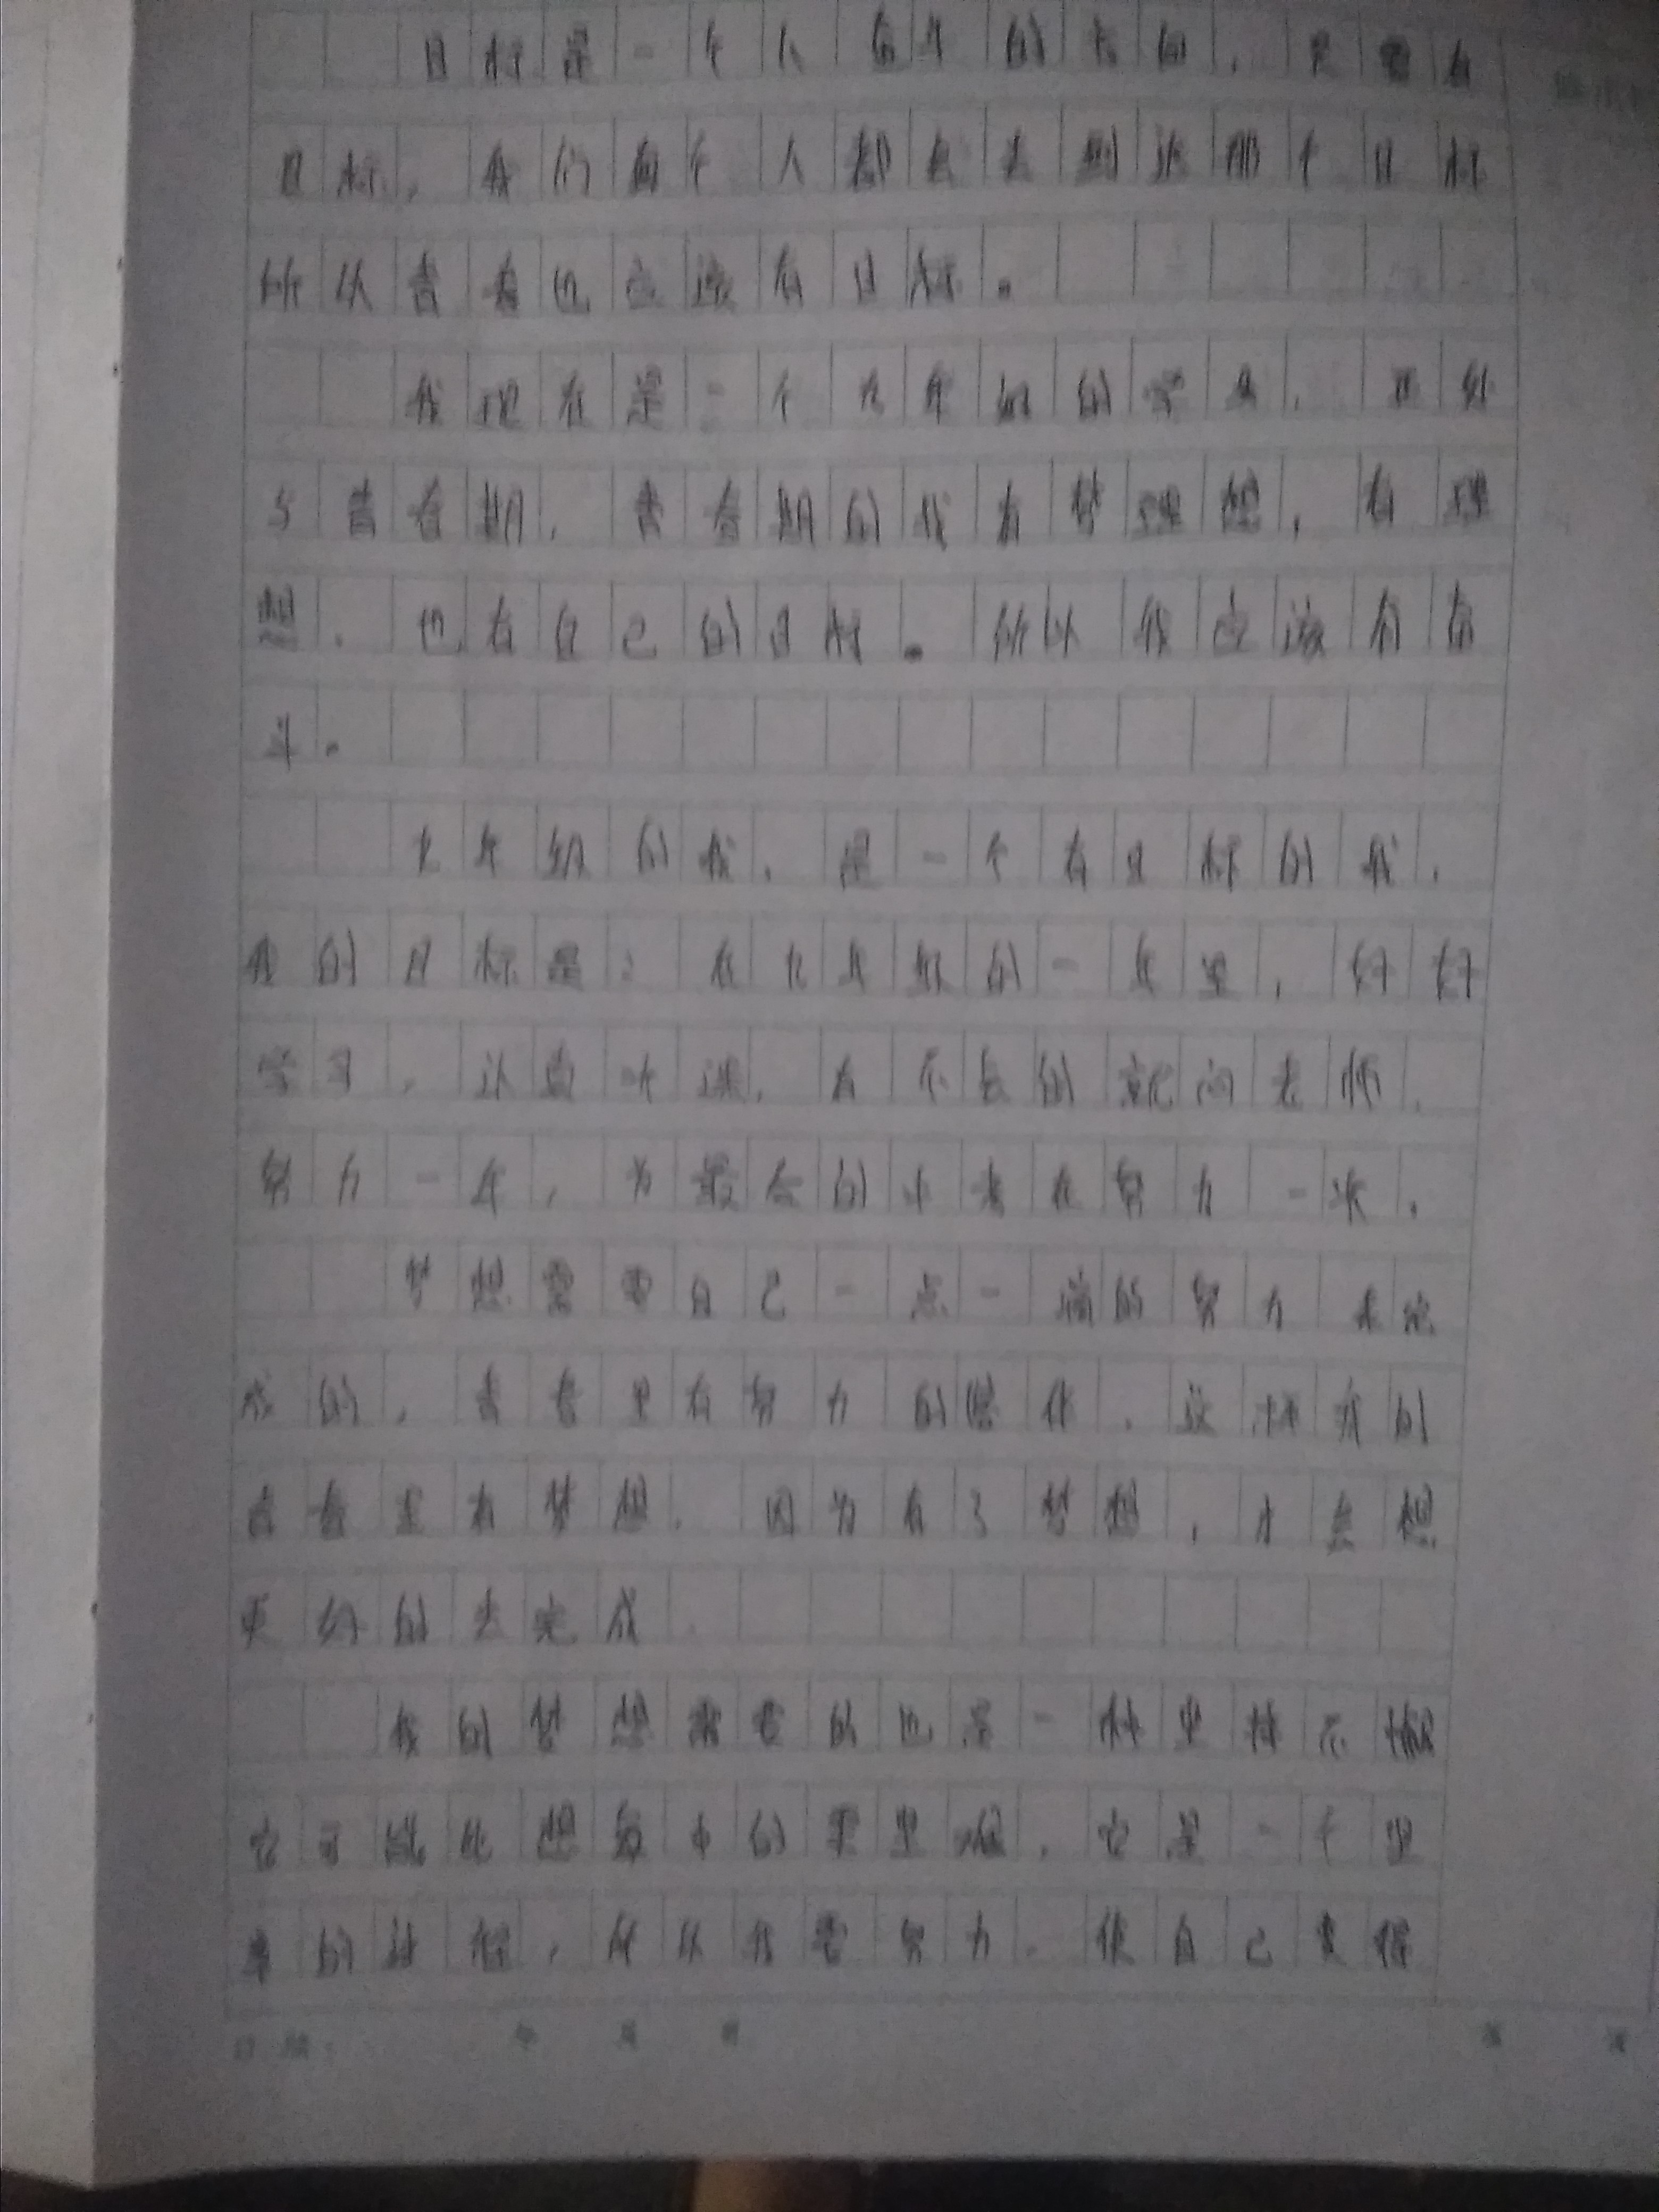 目标是一个人奋斗的方向，只要有
目标，我们每个人都会去到达那个目标
所以青春也应该有目标。
我现在是一个九年级的学生，正处
于青春期，青春期的我有梦理想，有理
想，也有自己的目标。所以我应该有奋
斗。
九年级的我，是一个有目标的我，
我的目标是：在九年级的一年里，好好
学习，认真听课，有不会的就问老师，
努力一年，为最后的中考在努力一次。
梦想需要自己一点一滴的努力来完
成的，青春里有努力的陪伴，这样我的
青春里有梦想，因为有了梦想，才会想
更好的去完成
我的梦想需要的也是一种坚持不懈
它可能比想象中的要更难，它是一个漫
的过程，所以我要努力，使自己变得
日期： 年 月 日